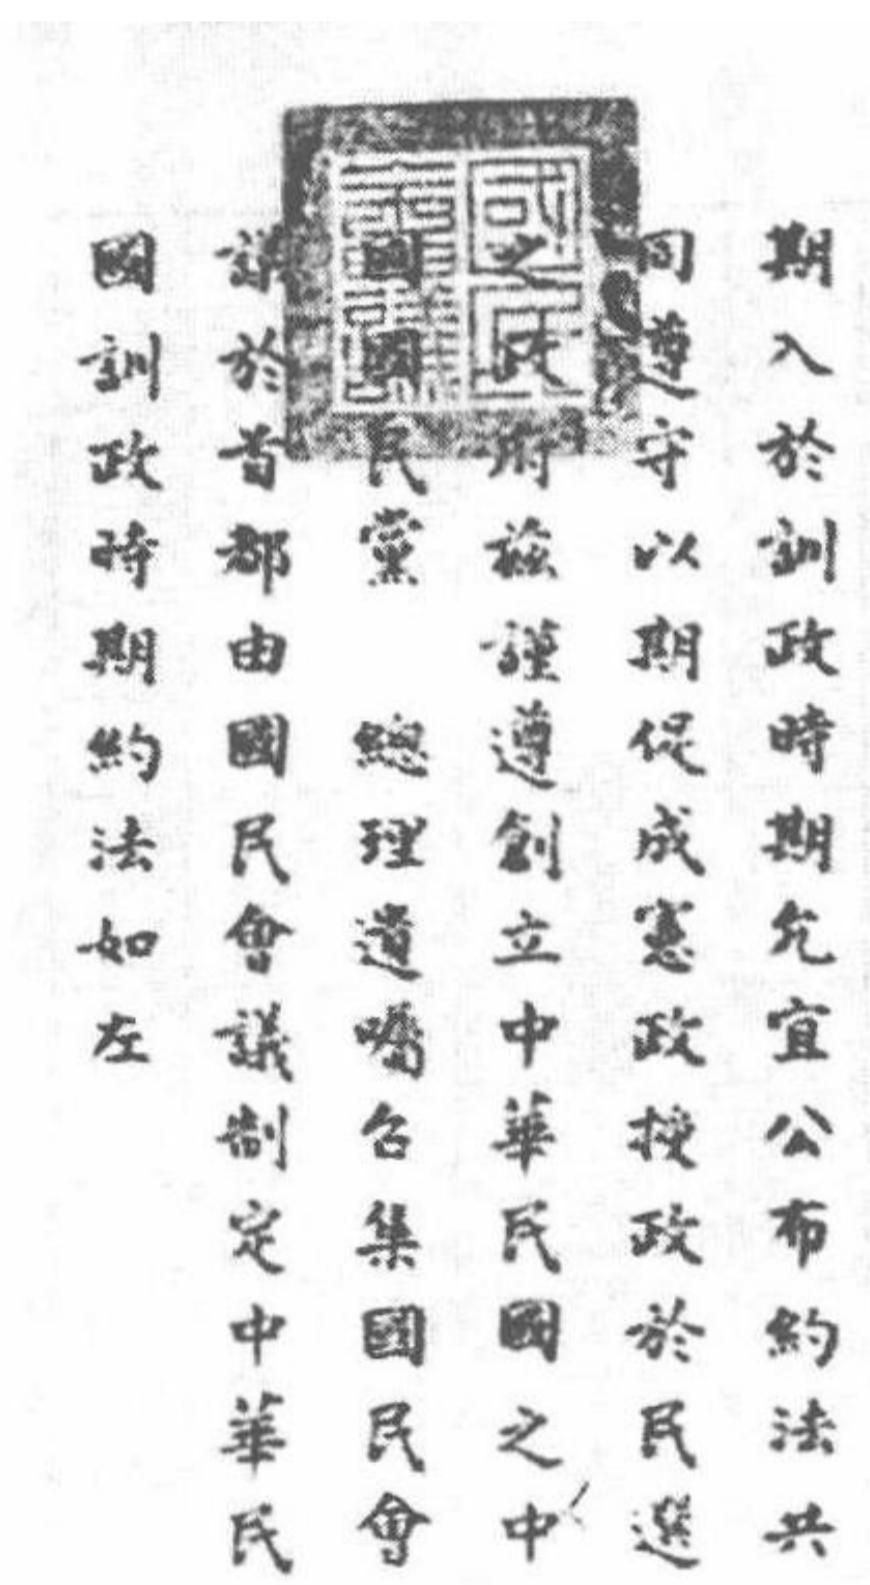 期入於訓政時期允宜公布約法共
同遵守以期促成憲政授政於民選
之政府茲謹遵創立中華民國之中
國國民黨　總理遺囑召集國民會
議於首都由國民會議制定中華民
國訓政時期約法如左
國民